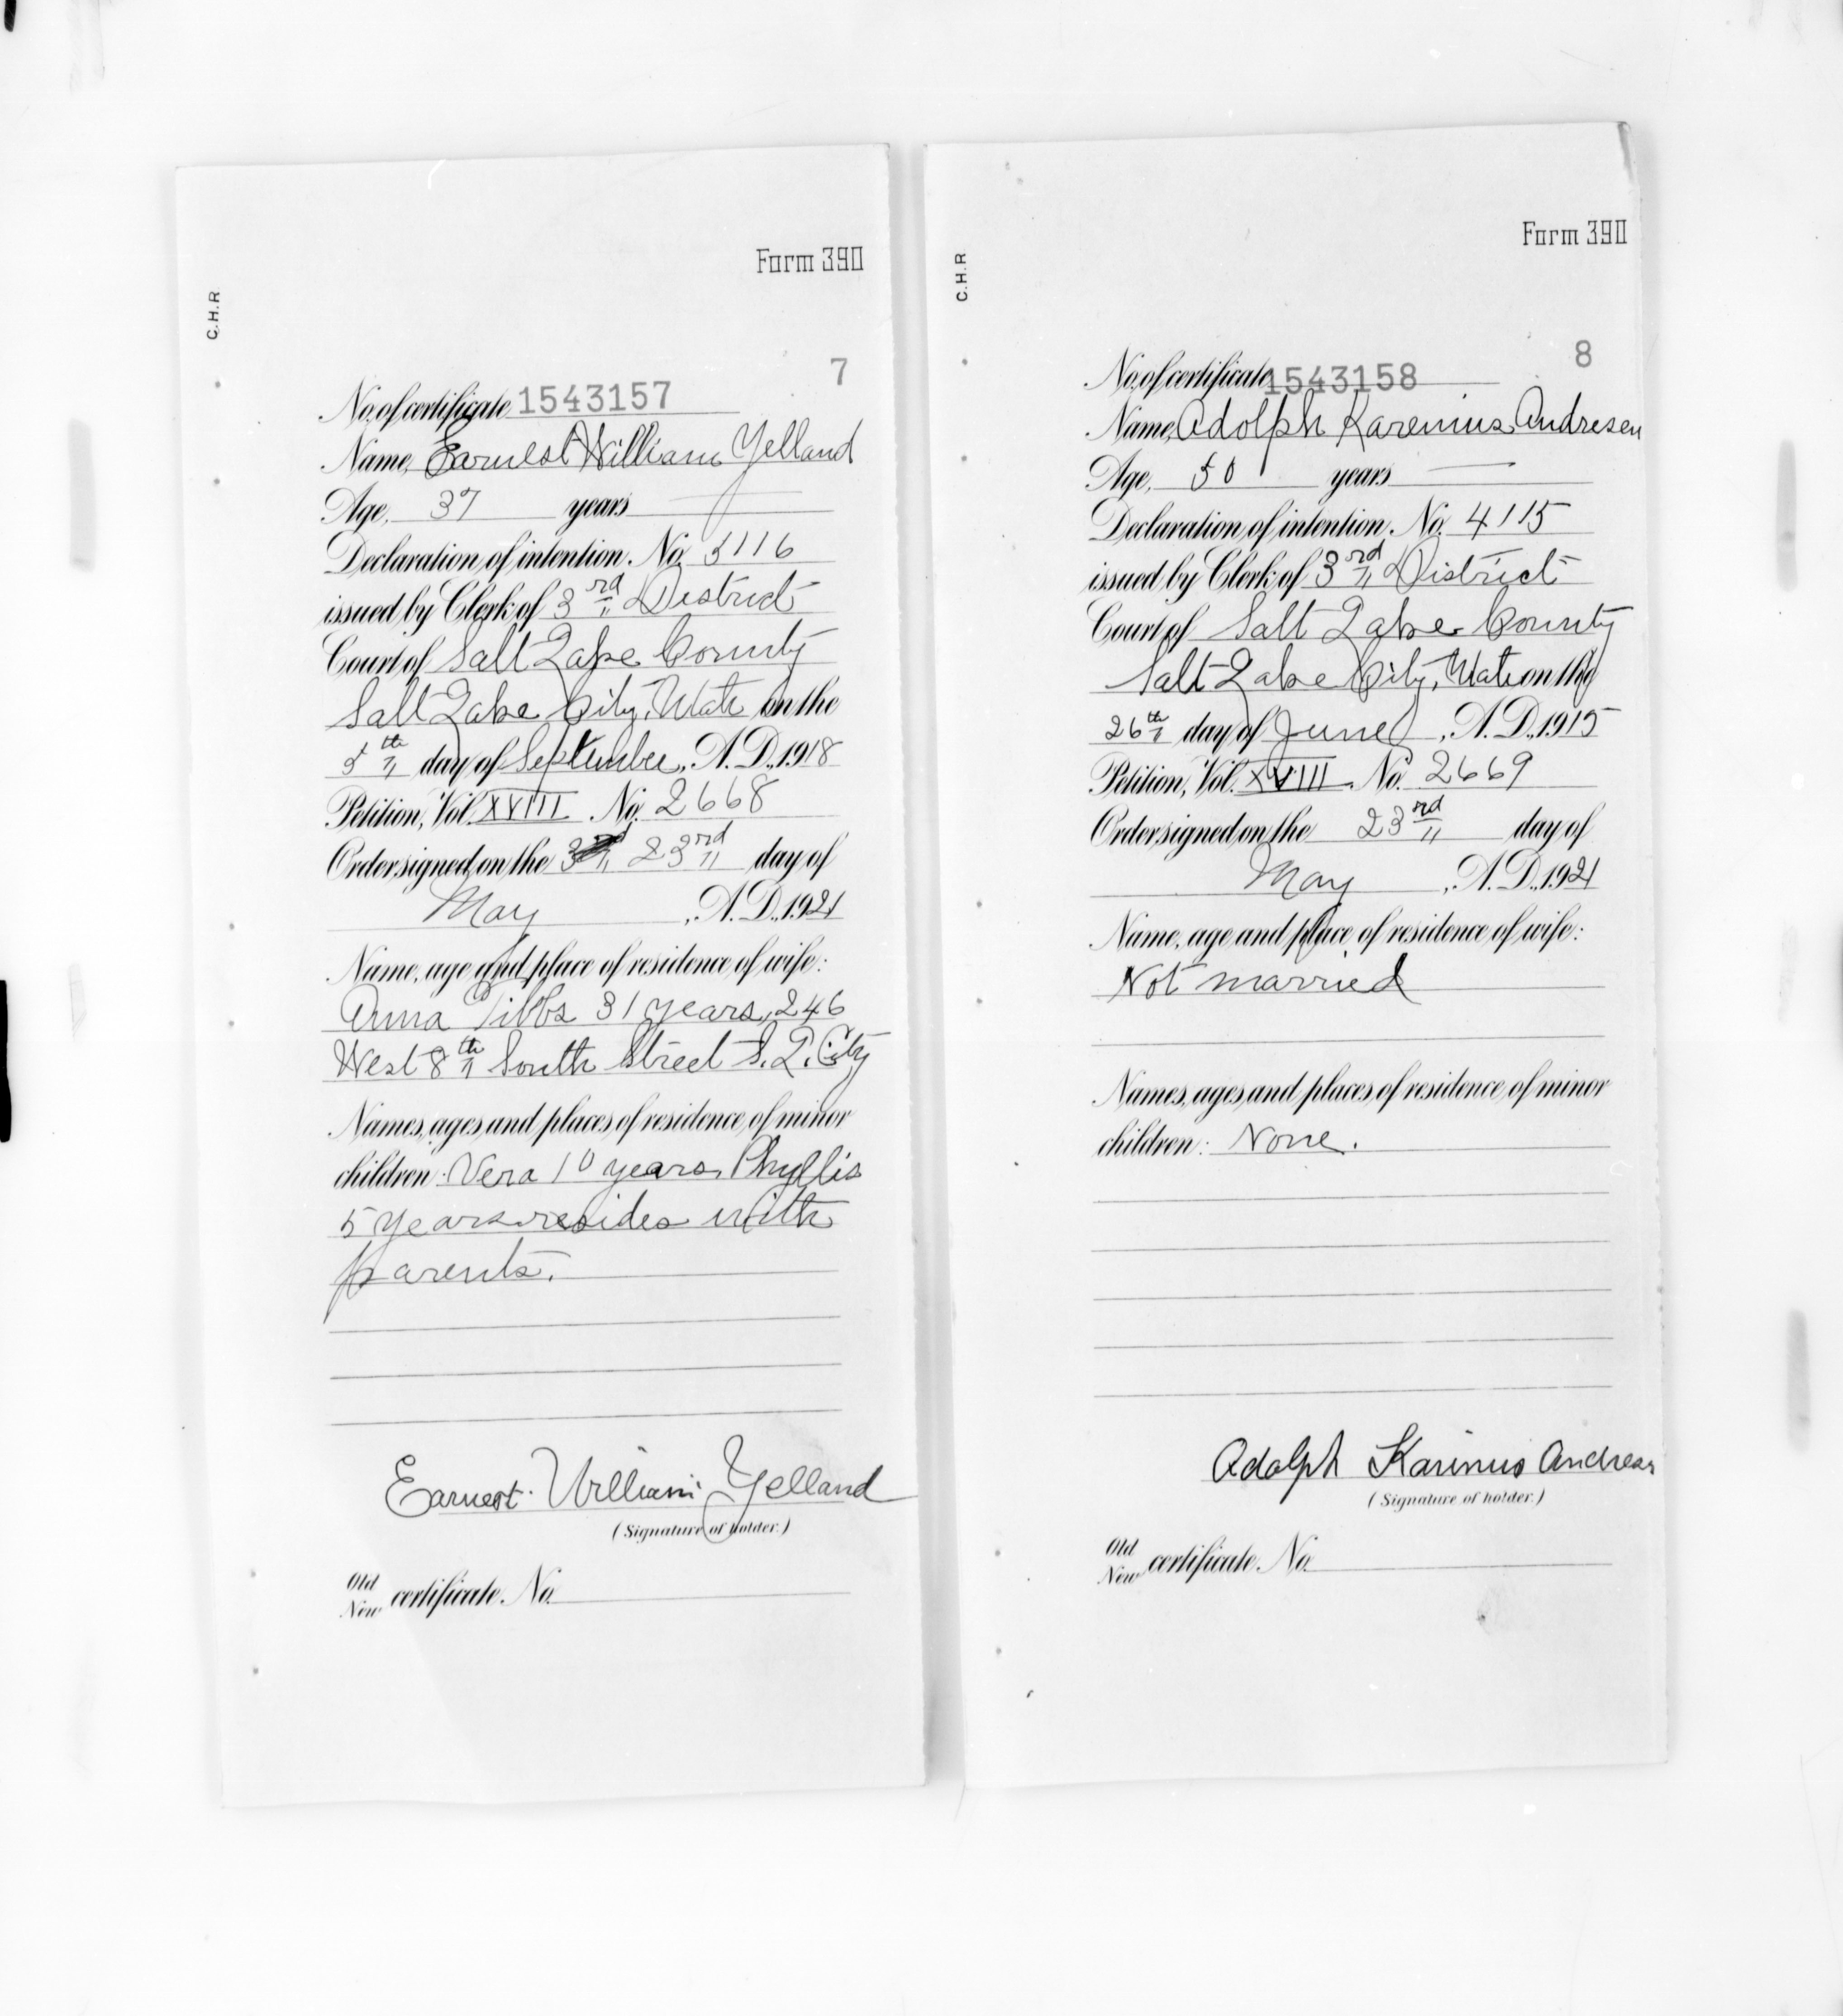 Form 390
C.H.R
7
No. of certificate 1543157
Name, Earnest William Yelland
Age, 37 years
Declaration of intention, No. 5116
issued by Clerk of 3rd District
Court of Salt Lake County
Salt Lake City, Utah on the
5th day of September, A.D., 1918
Petition, Vol. XVIII No. 2668
Order signed on the 23rd day of
May, A.D., 1921
Name, age and place of residence of wife:
Anna Tibbs 31 years, 246
West 8th South Street S.L. City
Names, ages and places of residence of minor
children: Vera 10 years, Phyllis
5 years resides with
parents.
Earnest William Yelland
(Signature of holder.)
Old
New certificate No.
Form 390
C.H.R
8
No. of certificate 1543158
Name, Adolph Karenius Andresen
Age, 50 years
Declaration of intention, No. 4115
issued by Clerk of 3rd District
Court of Salt Lake County
Salt Lake City, Utah on the
26th day of June, A.D., 1915
Petition, Vol. XVIII No. 2669
Order signed on the 23rd day of
May, A.D., 1921
Name, age and place of residence of wife:
Not married
Names, ages and places of residence of minor
children: None.
Adolph Karinius Andresen
(Signature of holder.)
Old
New certificate No.